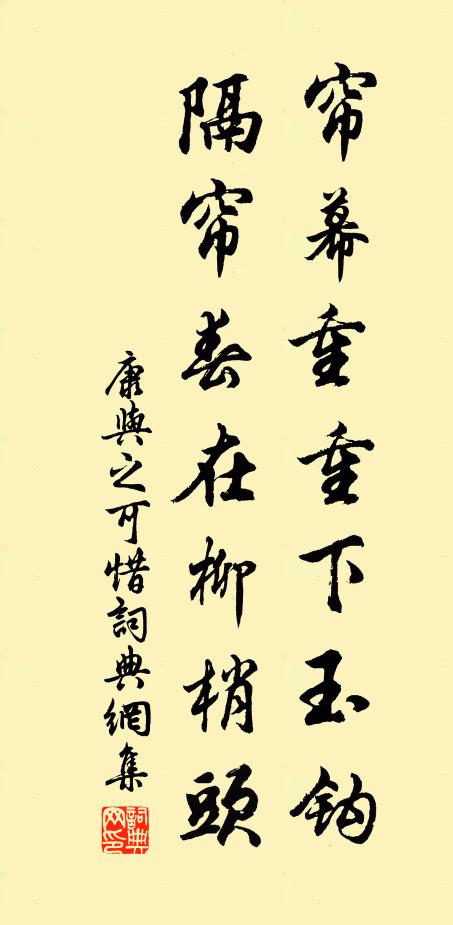 帘幕重重下玉钩
隔帘春在柳梢头
康與之可惜詞典網集
詞典網印